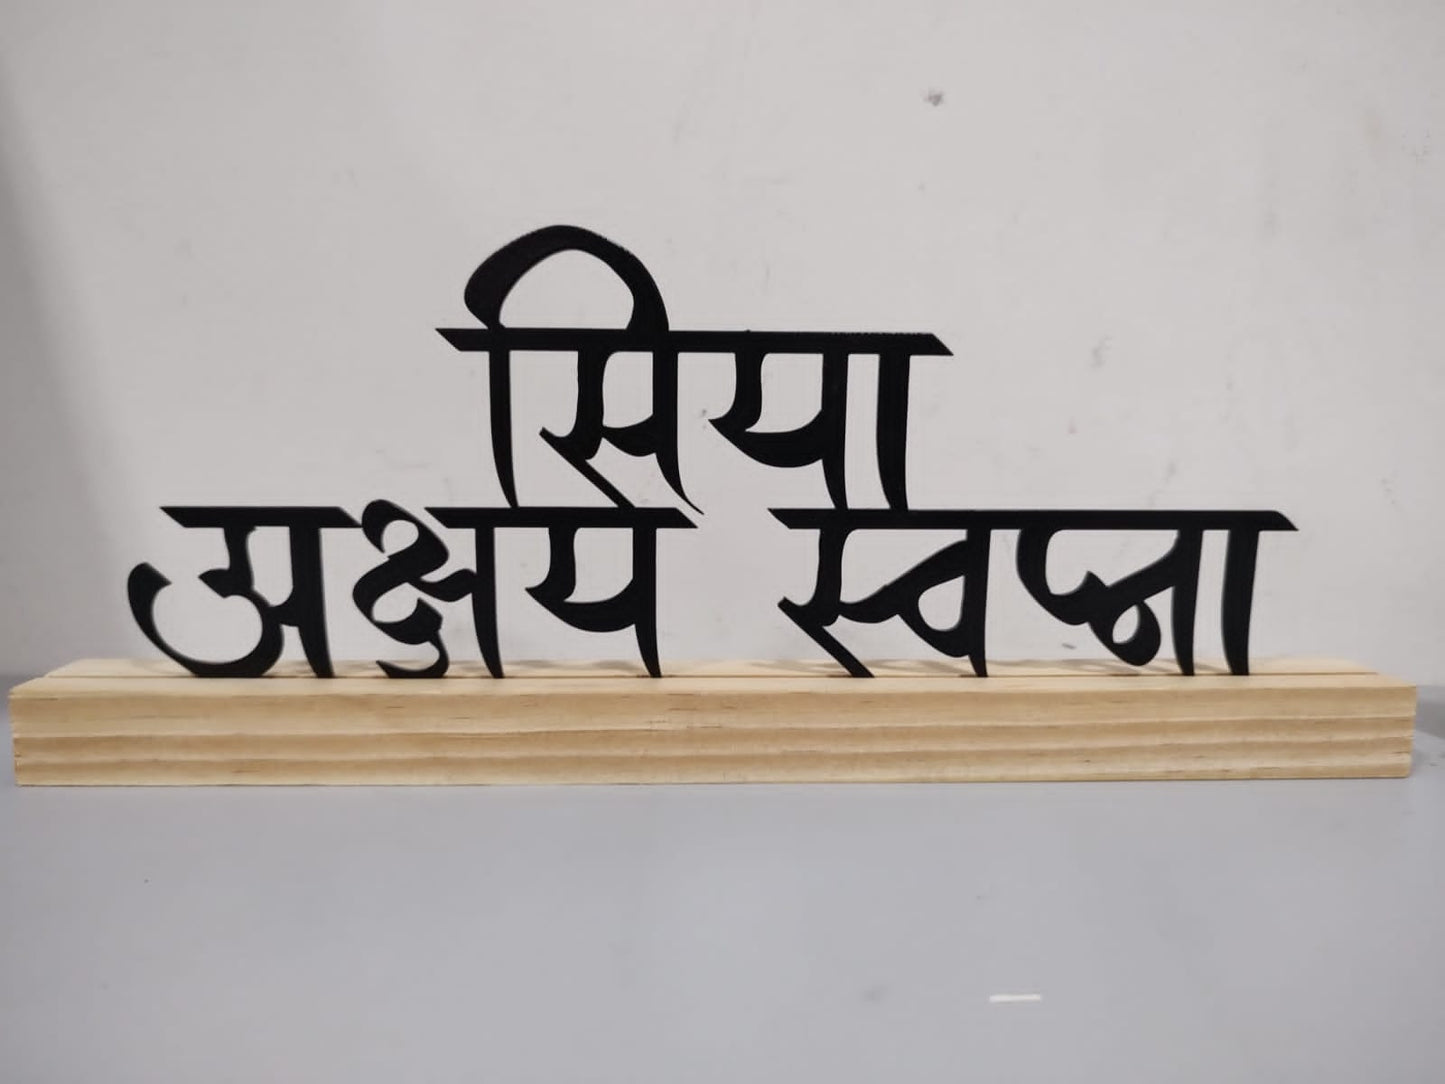 सिया
अक्षय स्वप्ना